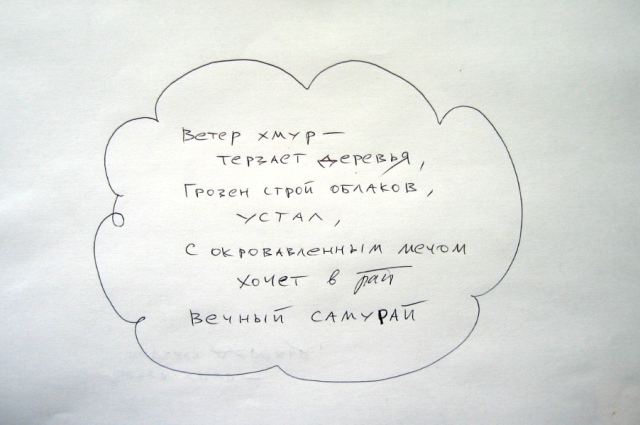 Ветер хмур —
терзает деревья,
Грозен строй облаков,
устал,
С окровавленным мечом
хочет в рай
Вечный самурай